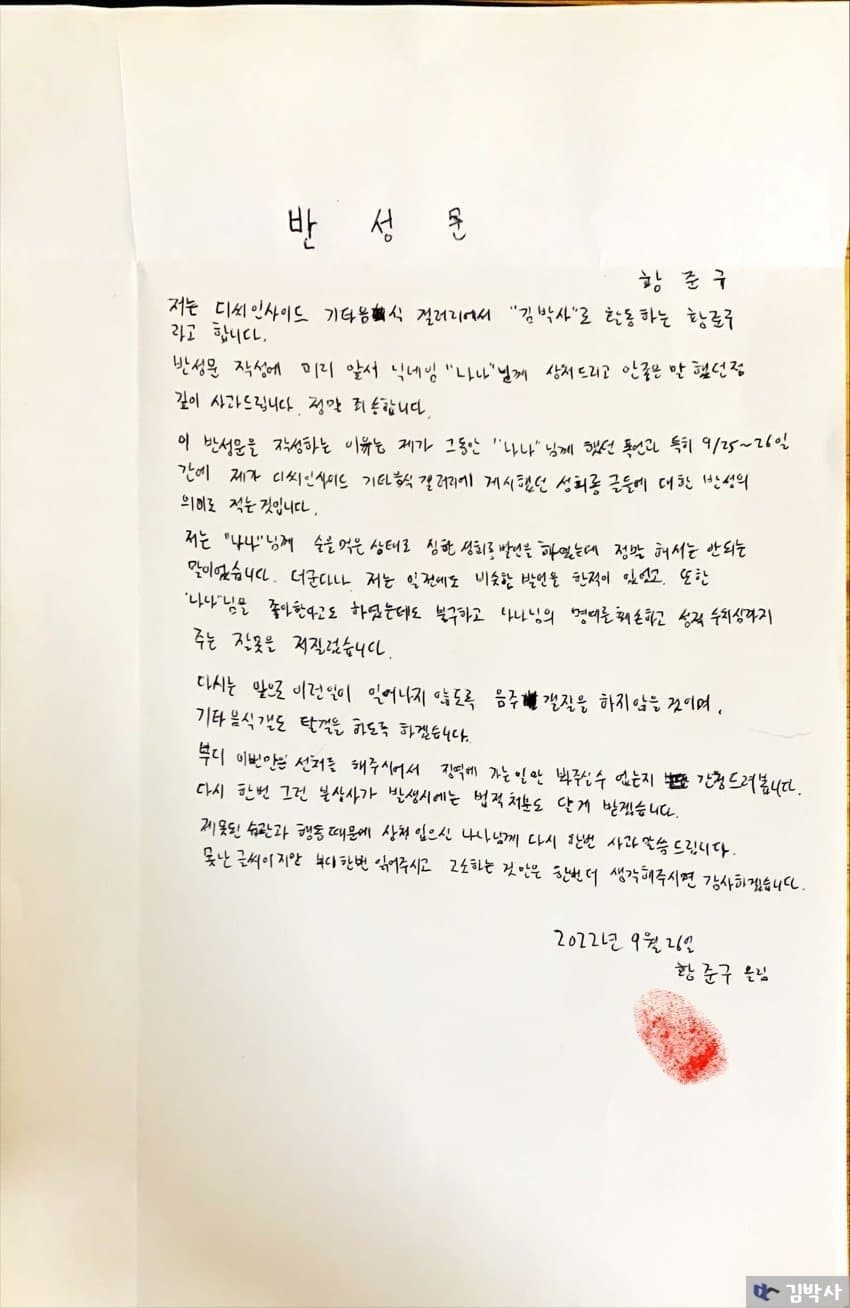 반 성 문
황 준 구
저는 디씨인사이드 기타음식 갤러리에서 "김박사"로 활동하는 황준구
라고 합니다.
반성문 작성에 미리 앞서 닉네임 "나나"님께 상처드리고 안좋은 말 했던점
깊이 사과드립니다. 정말 죄송합니다.
이 반성문을 작성하는 이유는 제가 그동안 "나나"님께 했던 폭언과 특히 9/25~26일
간에 제가 디씨인사이드 기타음식 갤러리에 게시했던 성희롱 글들에 대한 반성의
의미로 적는것입니다.
저는 "나나"님께 술을 먹은 상태로 심한 성희롱 발언을 하였는데 정말 해서는 안되는
말이었습니다. 더군다나 저는 일전에도 비슷한 발언을 한적이 있었고, 또한
"나나"님을 좋아한다고도 하였는데도 불구하고 나나님의 명예를 훼손하고 성적 수치심까지
주는 잘못을 저질렀습니다.
다시는 앞으로 이런일이 일어나지 않도록 음주 갤질을 하지않을 것이며,
기타음식갤도 탈갤을 하도록 하겠습니다.
부디 이번만은 선처를 해주시어서 징역에 가는일만 봐주실수 없는지 간청드려봅니다.
다시 한번 그런 불상사가 발생시에는 법적처분도 달게 받겠습니다.
제못된 습관과 행동때문에 상처 입으신 나나님께 다시 한번 사과말씀 드립니다.
못난 글씨이지만 부디한번 읽어주시고 고소하는 것만은 한번더 생각해주시면 감사하겠습니다.
2022년 9월 26일
황준구 올림
김박사